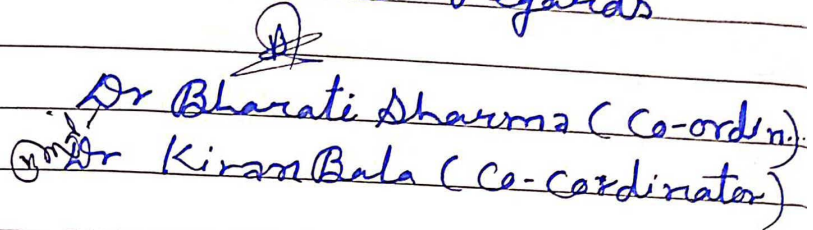 Regards
Dr Bharati Sharma (Co-ordin.)
Dr Kiran Bala (Co-cordinator)